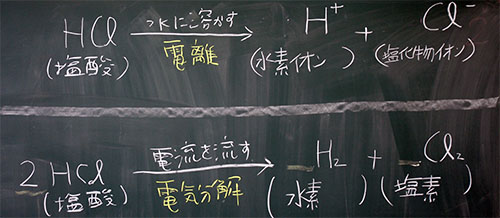 HCl 水に溶かす H⁺ + Cl⁻
(塩酸) 電離 (水素イオン) (塩化物イオン)
2 HCl 電流を流す H₂ + Cl₂
(塩酸) 電気分解 (水素) (塩素)